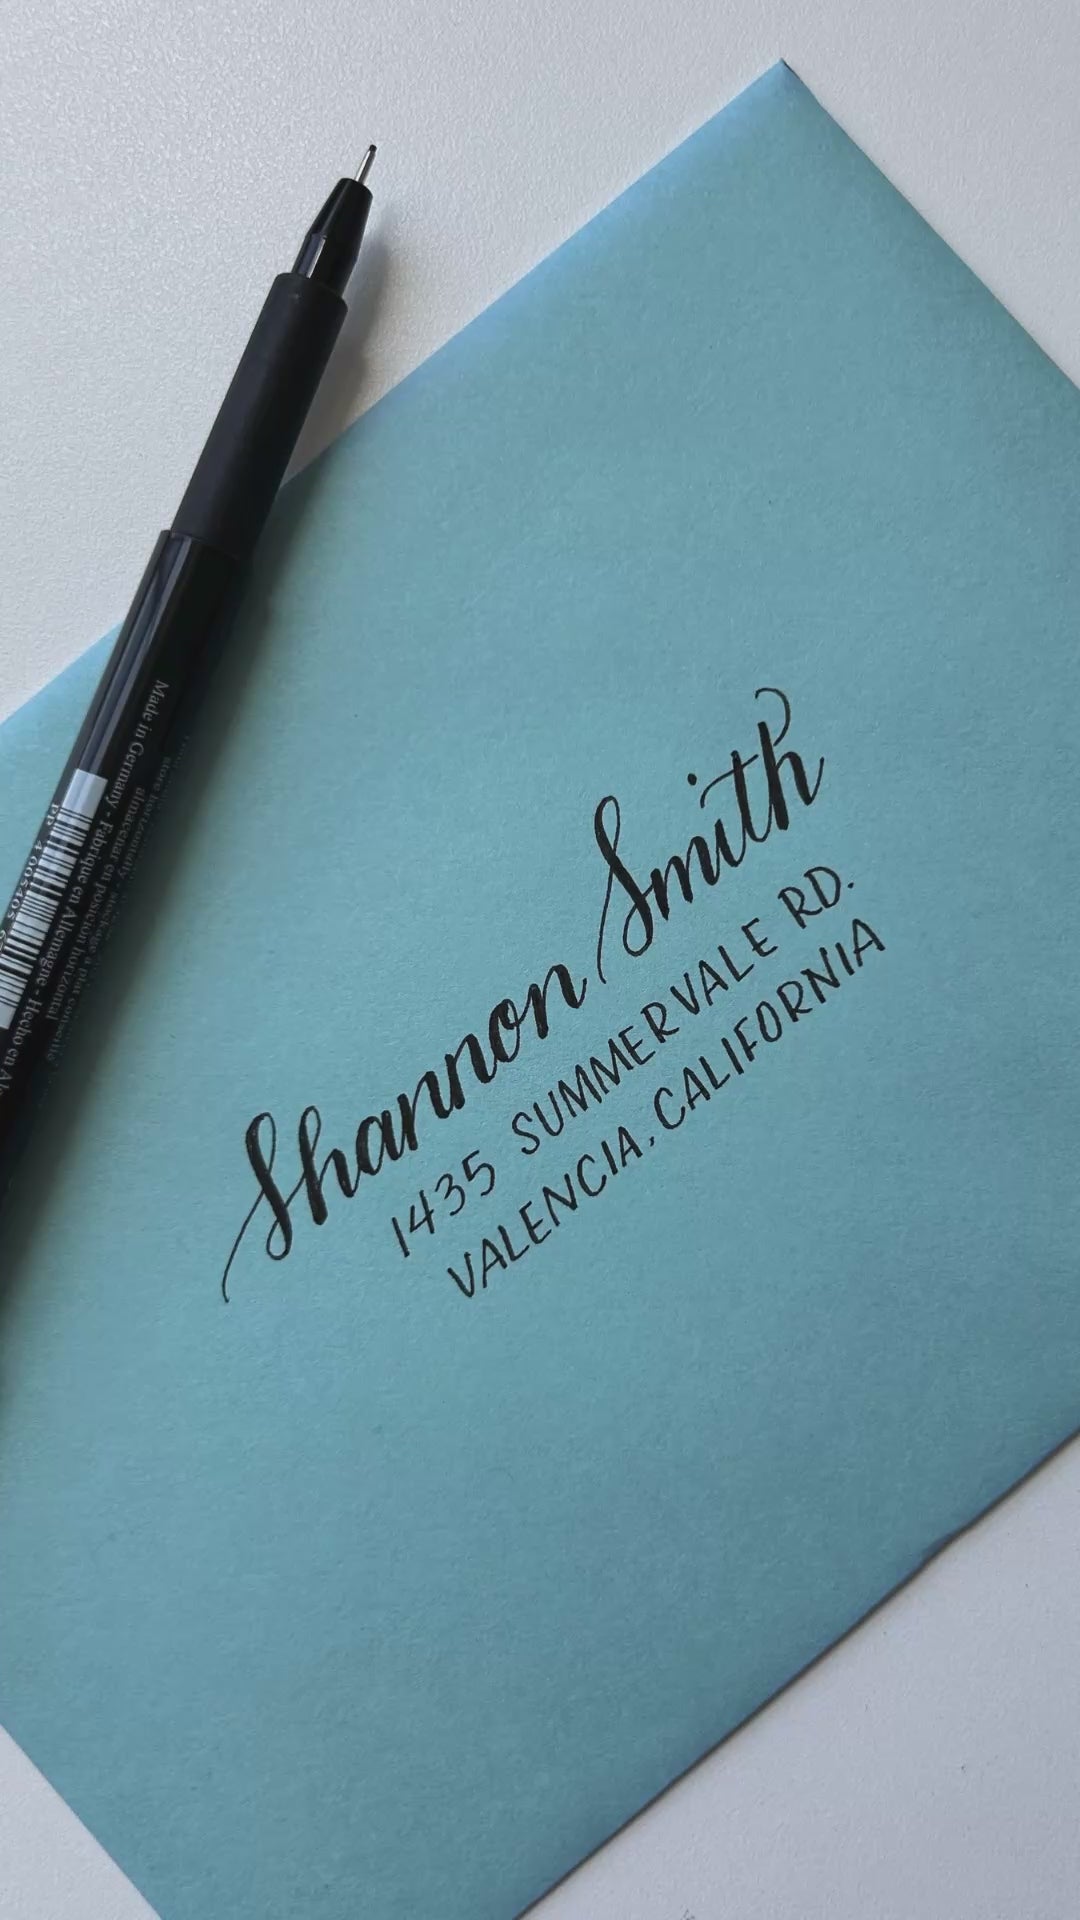 Shannon Smith
1435 SUMMERVALE RD.
VALENCIA, CALIFORNIA
Made in Germany - Fabriqué en Allemagne - Hecho en
store horizontally
almacenar en posición horizontal